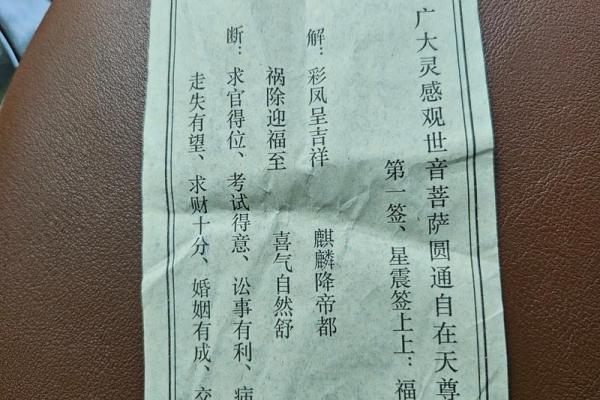 广大灵感观世音菩萨圆通自在天尊
第一签、星震签上上：福
解：彩凤呈吉祥 麒麟降帝都
祸除迎福至 喜气自然舒
断：求官得位、考试得意、讼事有利、病
走失有望、求财十分、婚姻有成、交